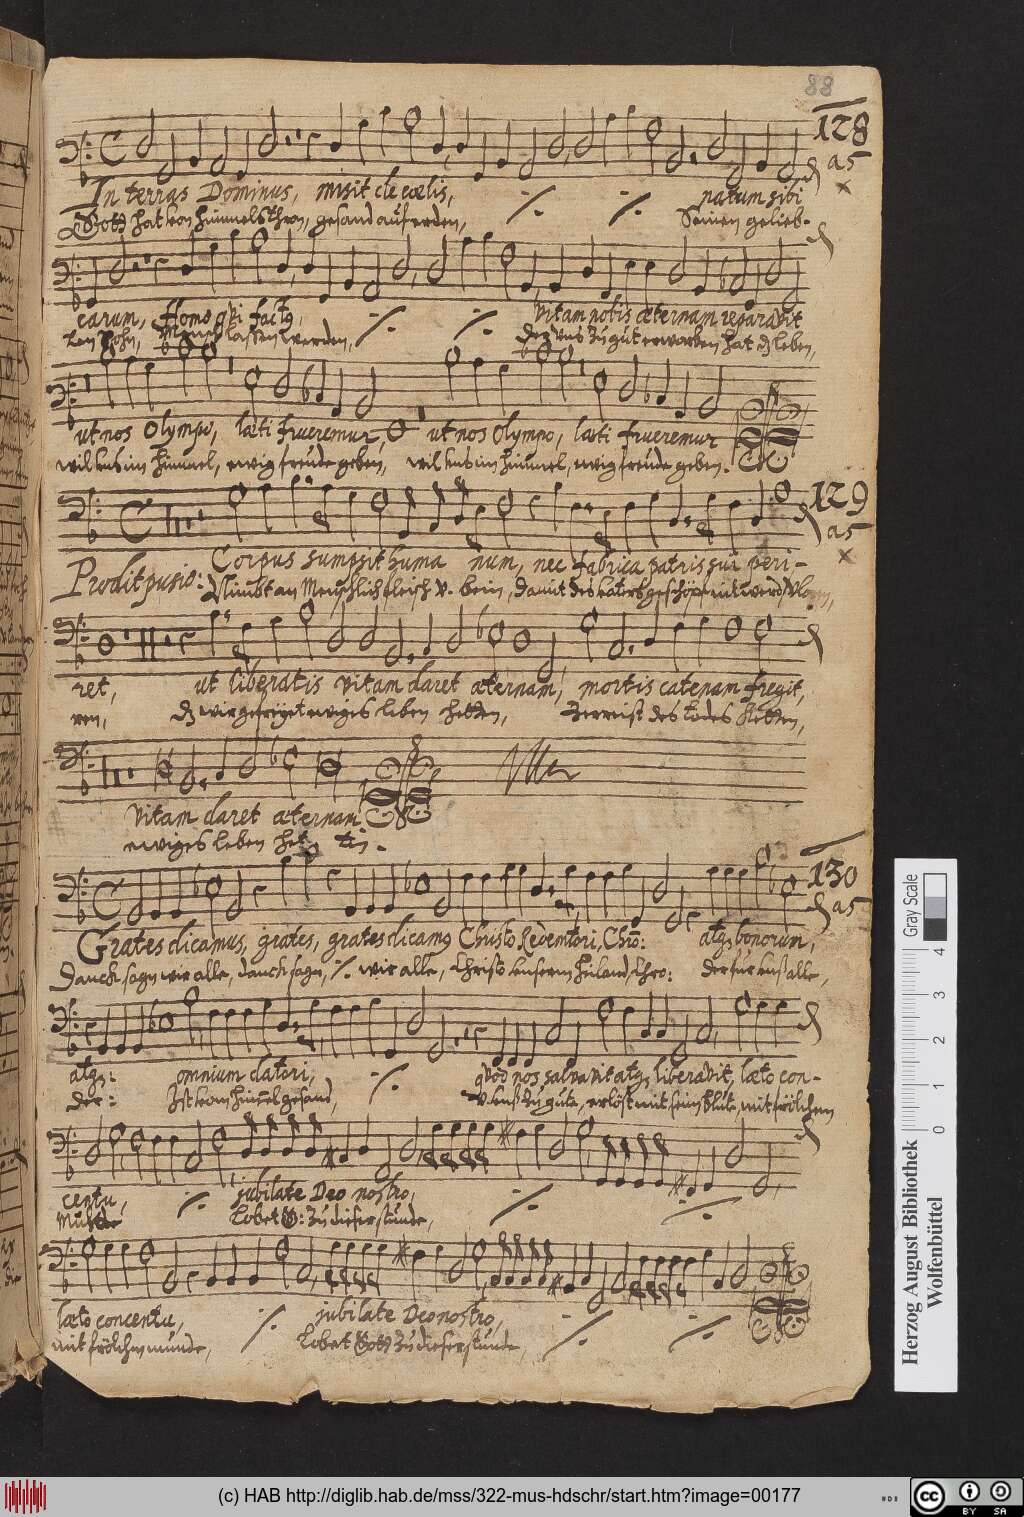 88
128
a5
In terras Dominus, misit de cœlis, natum sibi
Gott hat von himmelsthron, gesand auf erden, Seinen gelieb-
carum, Homo qvi fact9, vitam nobis æternam reparavit
ten Sohn, Mensch lassen werden, der uns zu gut erworben hat dz leben,
ut nos Olympo, læti frueremur, ut nos Olympo, læti frueremur
will uns im himmel, ewig freude geben, will uns im himmel, ewig freude geben.
129
a5
Prodit pusio: Corpus sumpsit huma num, nec fabrica patris sui peri-
Nimbt an Menschlich fleisch v. bein, damit des vaters geschöpf nit werd
ret, ut liberatis vitam daret æternam, mortis catenam fregit,
ren, dz wir gefreyet ewiges leben hetten, Zerreist des todes Ketten,
vitam daret æternam
ewiges leben het tn.
130
a5
Grates dicamus, grates, grates dicam9 Christo Redemtori, Chro: atq3 bonorum,
Danck sagn wir alle, danck sagn, wir alle, Christo unserm heiland, Chro: der für uns alle,
atq3: omnium datori, qvod nos salvavit atq3 liberavit, læto con-
der: Ist vom himmel gesand, v. uns zu gute, erlöst mit seim blute, mit frölichem
centu, jubilate Deo nostro,
Munde Lobet G: zu dieser stunde,
læto concentu, jubilate Deo nostro,
mit frölichem munde, Lobet Gott zu dieser stunde,
Gray Scale
0 1 2 3 4
Herzog August Bibliothek
Wolfenbüttel
(c) HAB http://diglib.hab.de/mss/322-mus-hdschr/start.htm?image=00177
cc BY SA